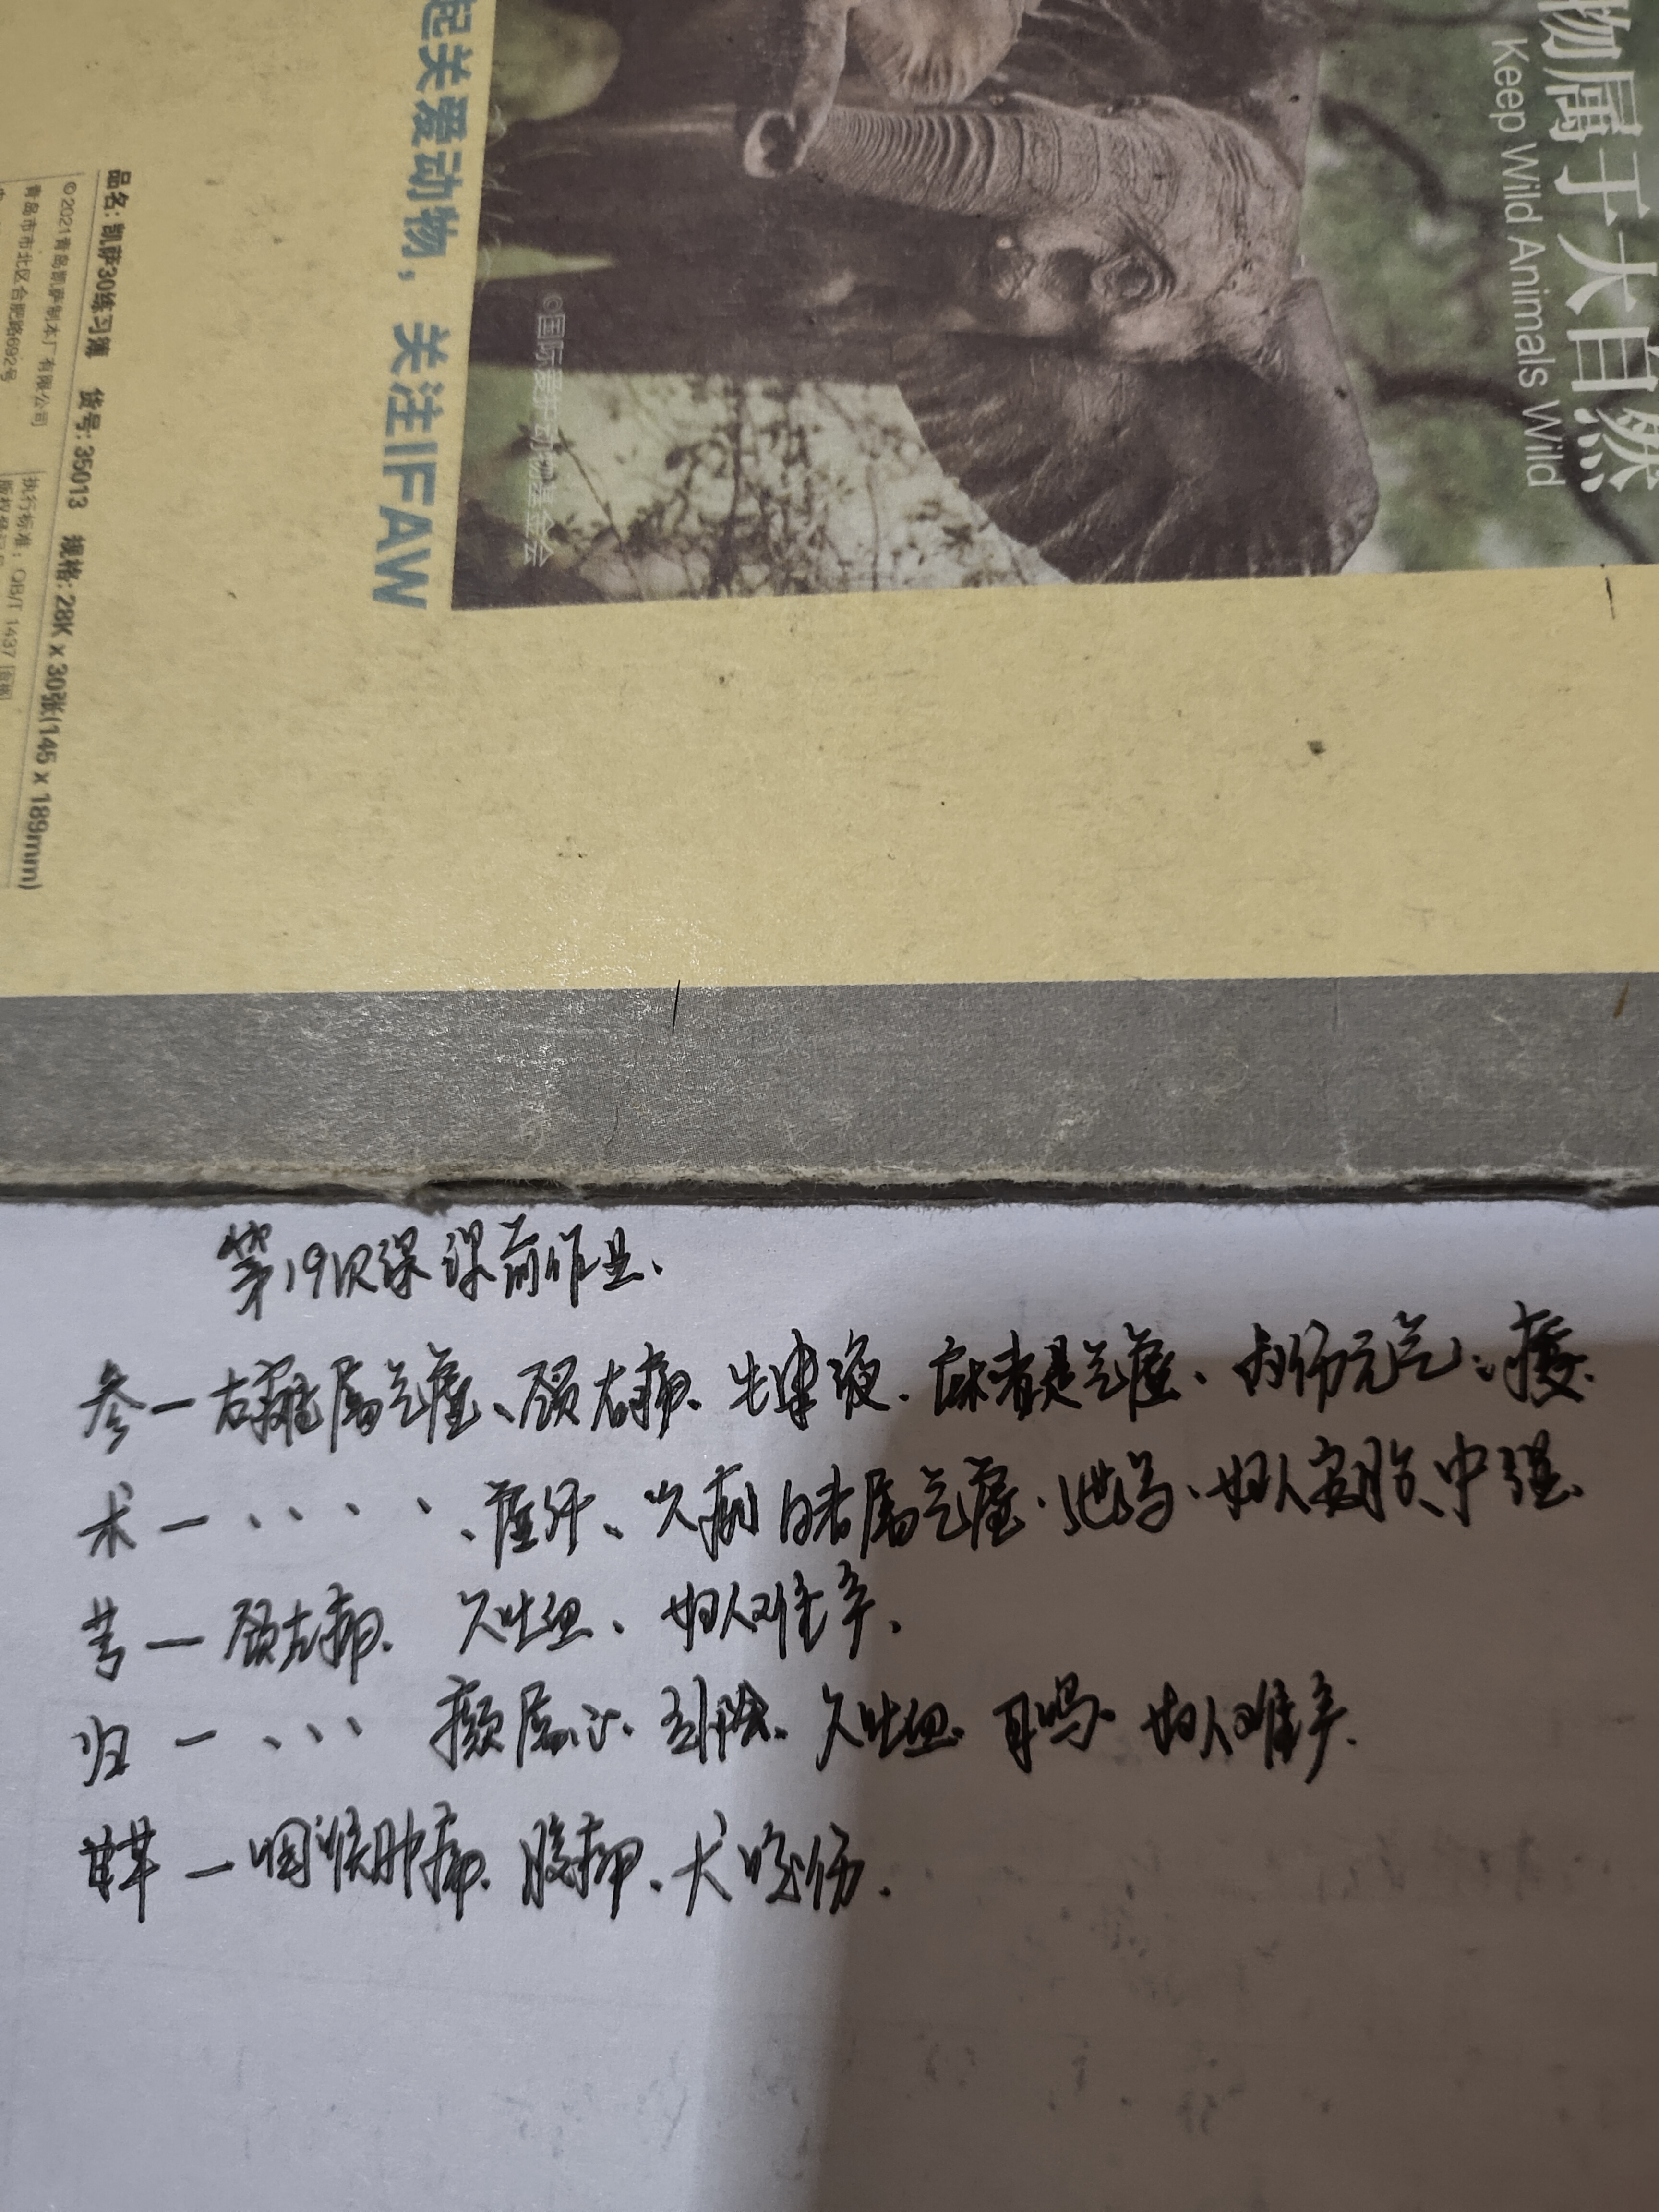 起关爱动物，关注IFAW
物属于大自然
Keep Wild Animals Wild
©国际爱护动物基金会
品名: 凯萨30练习簿 货号: 35013 规格: 28K x 30张(145 x 189mm)
©2021青岛凯萨制本厂有限公司
青岛市市北区合肥路692号
执行标准: QB/T 1437
第19次课 课前作业.
参一右瘫属气虚、头右痛、生津液、麻者是气虚、内伤元气、痿.
术一、、、、、虚汗、久痢白者属气虚、泄泻、妇人安胎、中湿.
芎一头左痛. 久吐血、妇人难产.
归一、、、 癫属心. 久吐血. 耳鸣. 妇人难产.
甘草一咽喉肿痛、腹痛、犬咬伤.